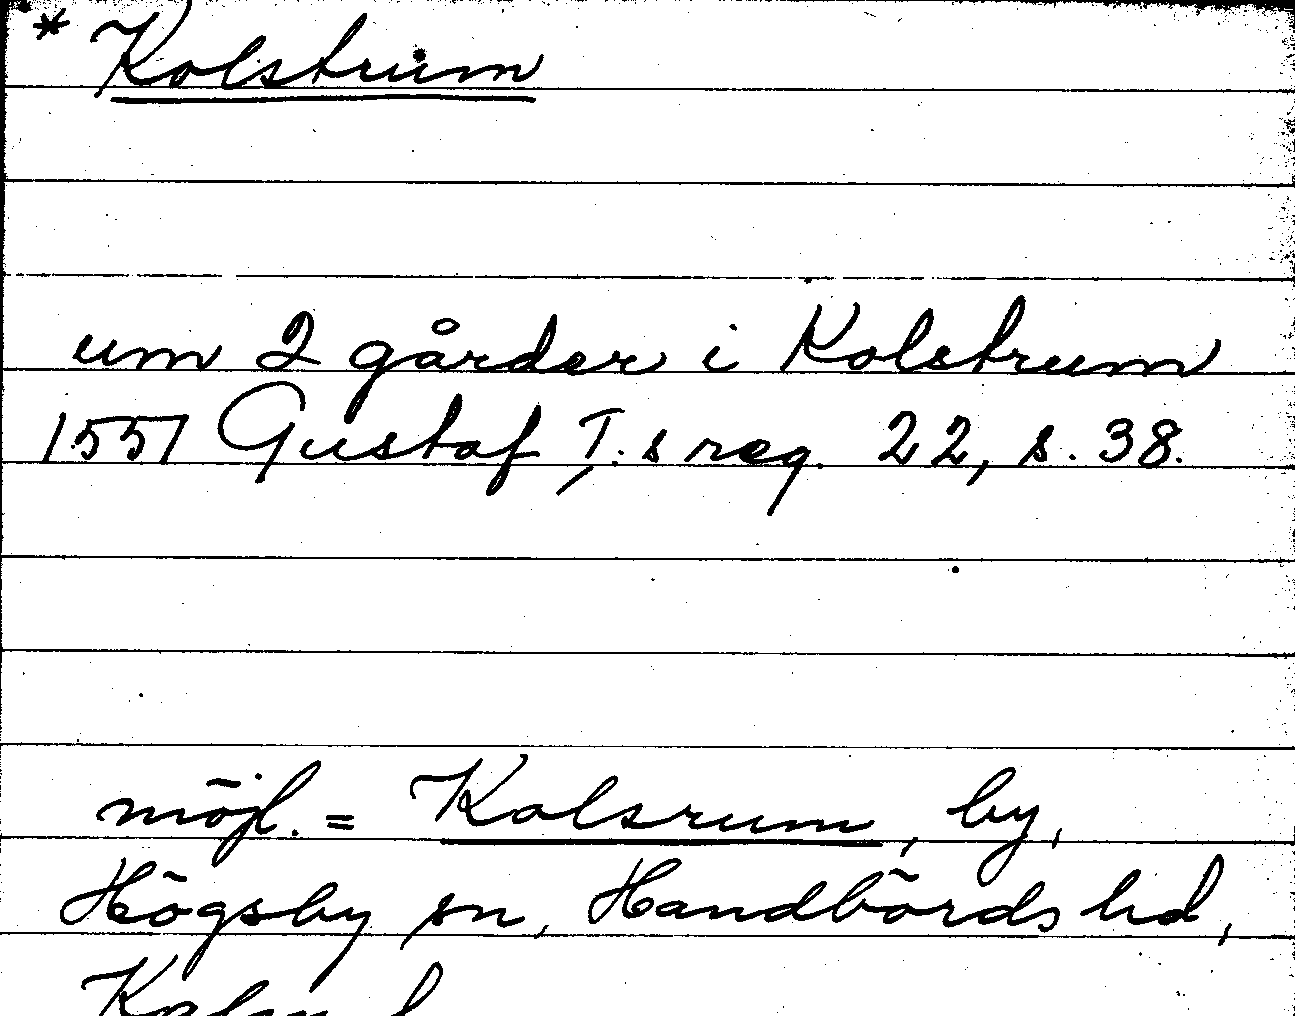 * Kolstrum
um 2 gårder i Kolstrum
1551 Gustaf I.s reg. 22, s. 38.
möjl. = Kolsrum, by,
Högsby sn, Handbörds hd,